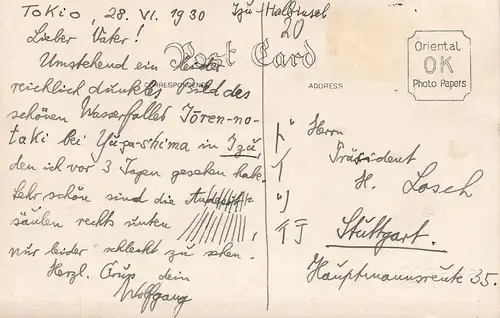 Tokio, 28. VI. 1930
Izu-Halbinsel
20
Lieber Vater!
Post Card
Umstehend ein leider
CORRESPONDENCE
ADDRESS
reichlich dunkles Bild des
schönen Wasserfalles Jōren-no-
taki bei Yu-ga-shima in Izu,
den ich vor 3 Tagen gesehen habe.
Sehr schön sind die Andesit-
säulen rechts unten,
nur leider schlecht zu sehen.
Herzl. Gruss dein
Wolfgang
Oriental
OK
Photo Papers
ドイツ行
Herrn
Präsident
H. Losch
Stuttgart.
Hauptmannsreute 35.